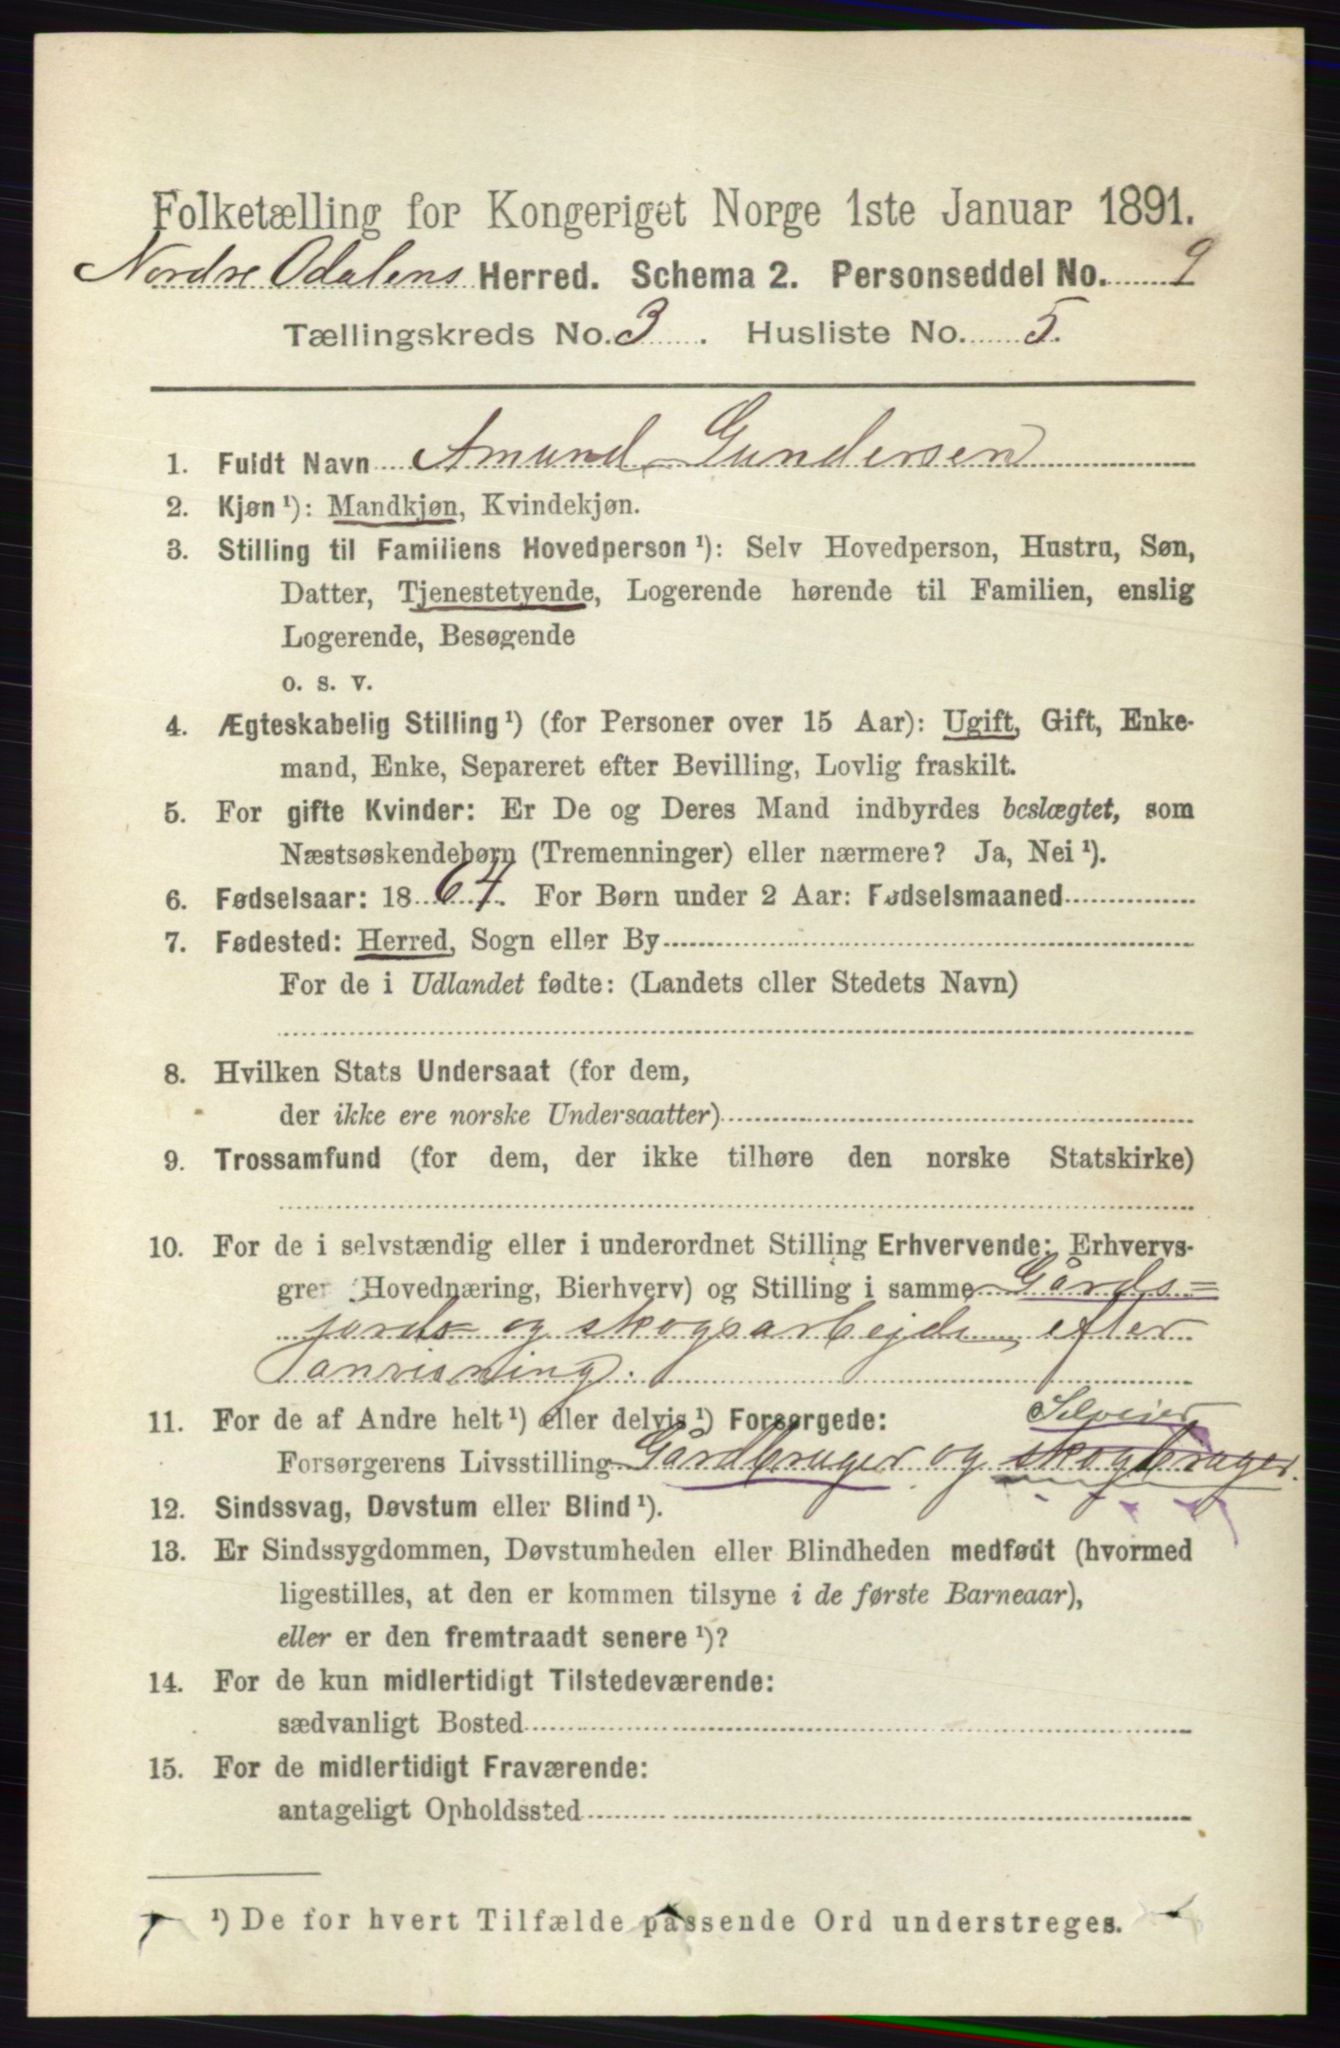 Folketælling for Kongeriget Norge 1ste Januar 1891.
Nordre Odalens Herred. Schema 2. Personseddel No. 9
Tællingskreds No. 3. Husliste No. 5.
1. Fuldt Navn Amund Gundersen
2. Kjøn ¹): Mandkjøn, Kvindekjøn.
3. Stilling til Familiens Hovedperson ¹): Selv Hovedperson, Hustru, Søn,
Datter, Tjenestetyende, Logerende hørende til Familien, enslig
Logerende, Besøgende
o. s. v.
4. Ægteskabelig Stilling ¹) (for Personer over 15 Aar): Ugift, Gift, Enke-
mand, Enke, Separeret efter Bevilling, Lovlig fraskilt.
5. For gifte Kvinder: Er De og Deres Mand indbyrdes beslægtet, som
Næstsøskendebørn (Tremenninger) eller nærmere? Ja, Nei ¹).
6. Fødselsaar: 1864. For Børn under 2 Aar: Fødselsmaaned
7. Fødested: Herred, Sogn eller By
For de i Udlandet fødte: (Landets eller Stedets Navn)
8. Hvilken Stats Undersaat (for dem,
der ikke ere norske Undersaatter)
9. Trossamfund (for dem, der ikke tilhøre den norske Statskirke)
10. For de i selvstændig eller i underordnet Stilling Erhvervende: Erhvervs-
gren (Hovednæring, Bierhverv) og Stilling i samme Gårds=
jords- og skogsarbejde efter
anvisning.
11. For de af Andre helt ¹) eller delvis ¹) Forsørgede: Selveier
Forsørgerens Livsstilling Gårdbruger og skogbruger.
12. Sindssvag, Døvstum eller Blind ¹).
13. Er Sindssygdommen, Døvstumheden eller Blindheden medfødt (hvormed
ligestilles, at den er kommen tilsyne i de første Barneaar),
eller er den fremtraadt senere ¹)?
14. For de kun midlertidigt Tilstedeværende:
sædvanligt Bosted
15. For de midlertidigt Fraværende:
antageligt Opholdssted
¹) De for hvert Tilfælde passende Ord understreges.